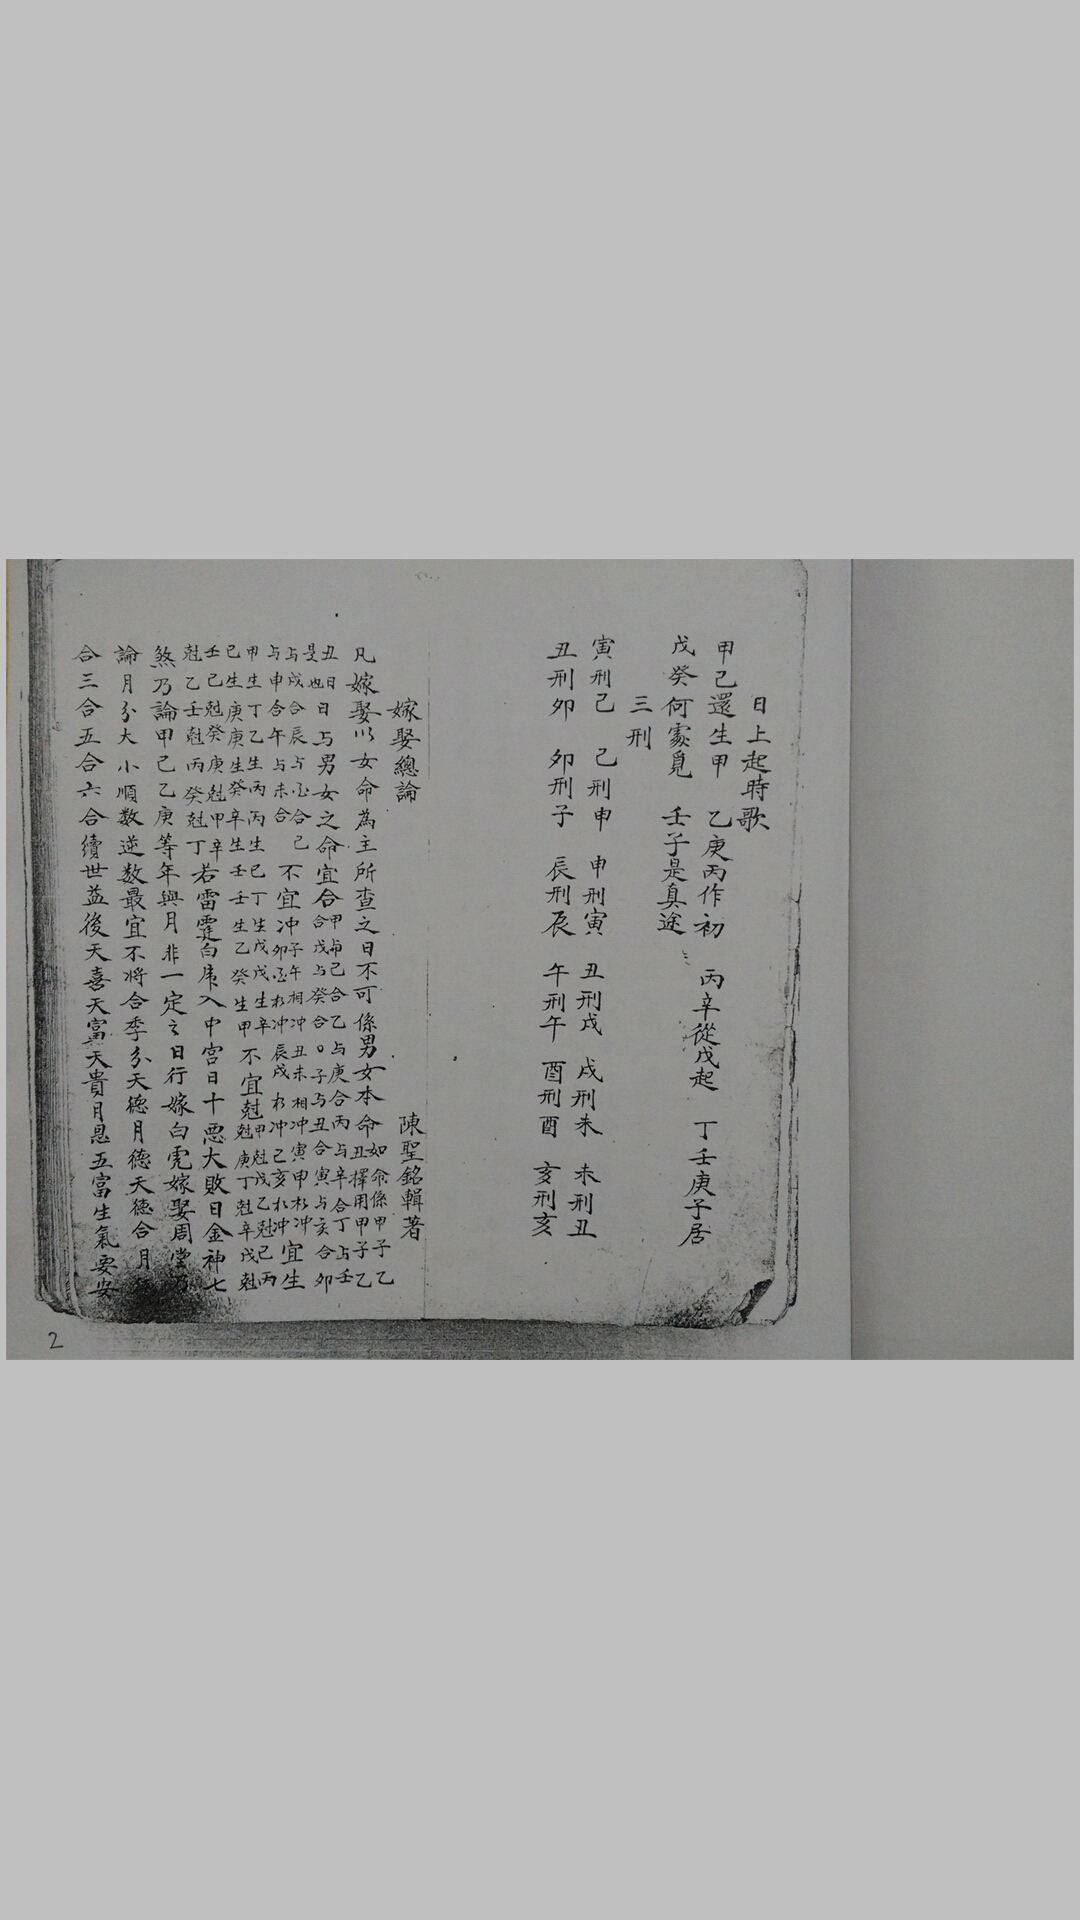 日上起時歌
甲己還生甲　乙庚丙作初　丙辛從戊起　丁壬庚子居
戊癸何處覓　壬子是真途
三刑
寅刑巳　巳刑申　申刑寅　丑刑戌　戌刑未　未刑丑
丑刑卯　卯刑子　辰刑辰　午刑午　酉刑酉　亥刑亥
嫁娶總論　陳聖銘輯著
凡嫁娶以女命為主所查之日不可係男女本命如命係甲子乙
丑擇用甲子乙
丑日
是也日与男女之命宜合甲与己合乙与庚合丙与辛合丁与壬
合戊与癸合○子与丑合寅与亥合卯
与戌合辰与酉合巳
与申合午与未合不宜冲子午相冲丑未相冲寅申相冲
卯酉相冲辰戌相冲巳亥相冲宜生
甲生丁乙生丙丙生己丁生戊戊生辛
己生庚庚生癸辛生壬壬生乙癸生甲不宜尅甲尅戊乙尅己丙
尅庚丁尅辛戊尅
壬己尅癸庚尅甲辛
尅乙壬尅丙癸尅丁若雷霆白虎入中宮日十惡大敗日金神七
煞乃論甲己乙庚等年與月非一定之日行嫁白虎嫁娶周堂乃
論月分大小順数逆数最宜不將合季分天德月德天德合月德
合三合五合六合續世益後天喜天富天貴月恩五富生氣要安
2